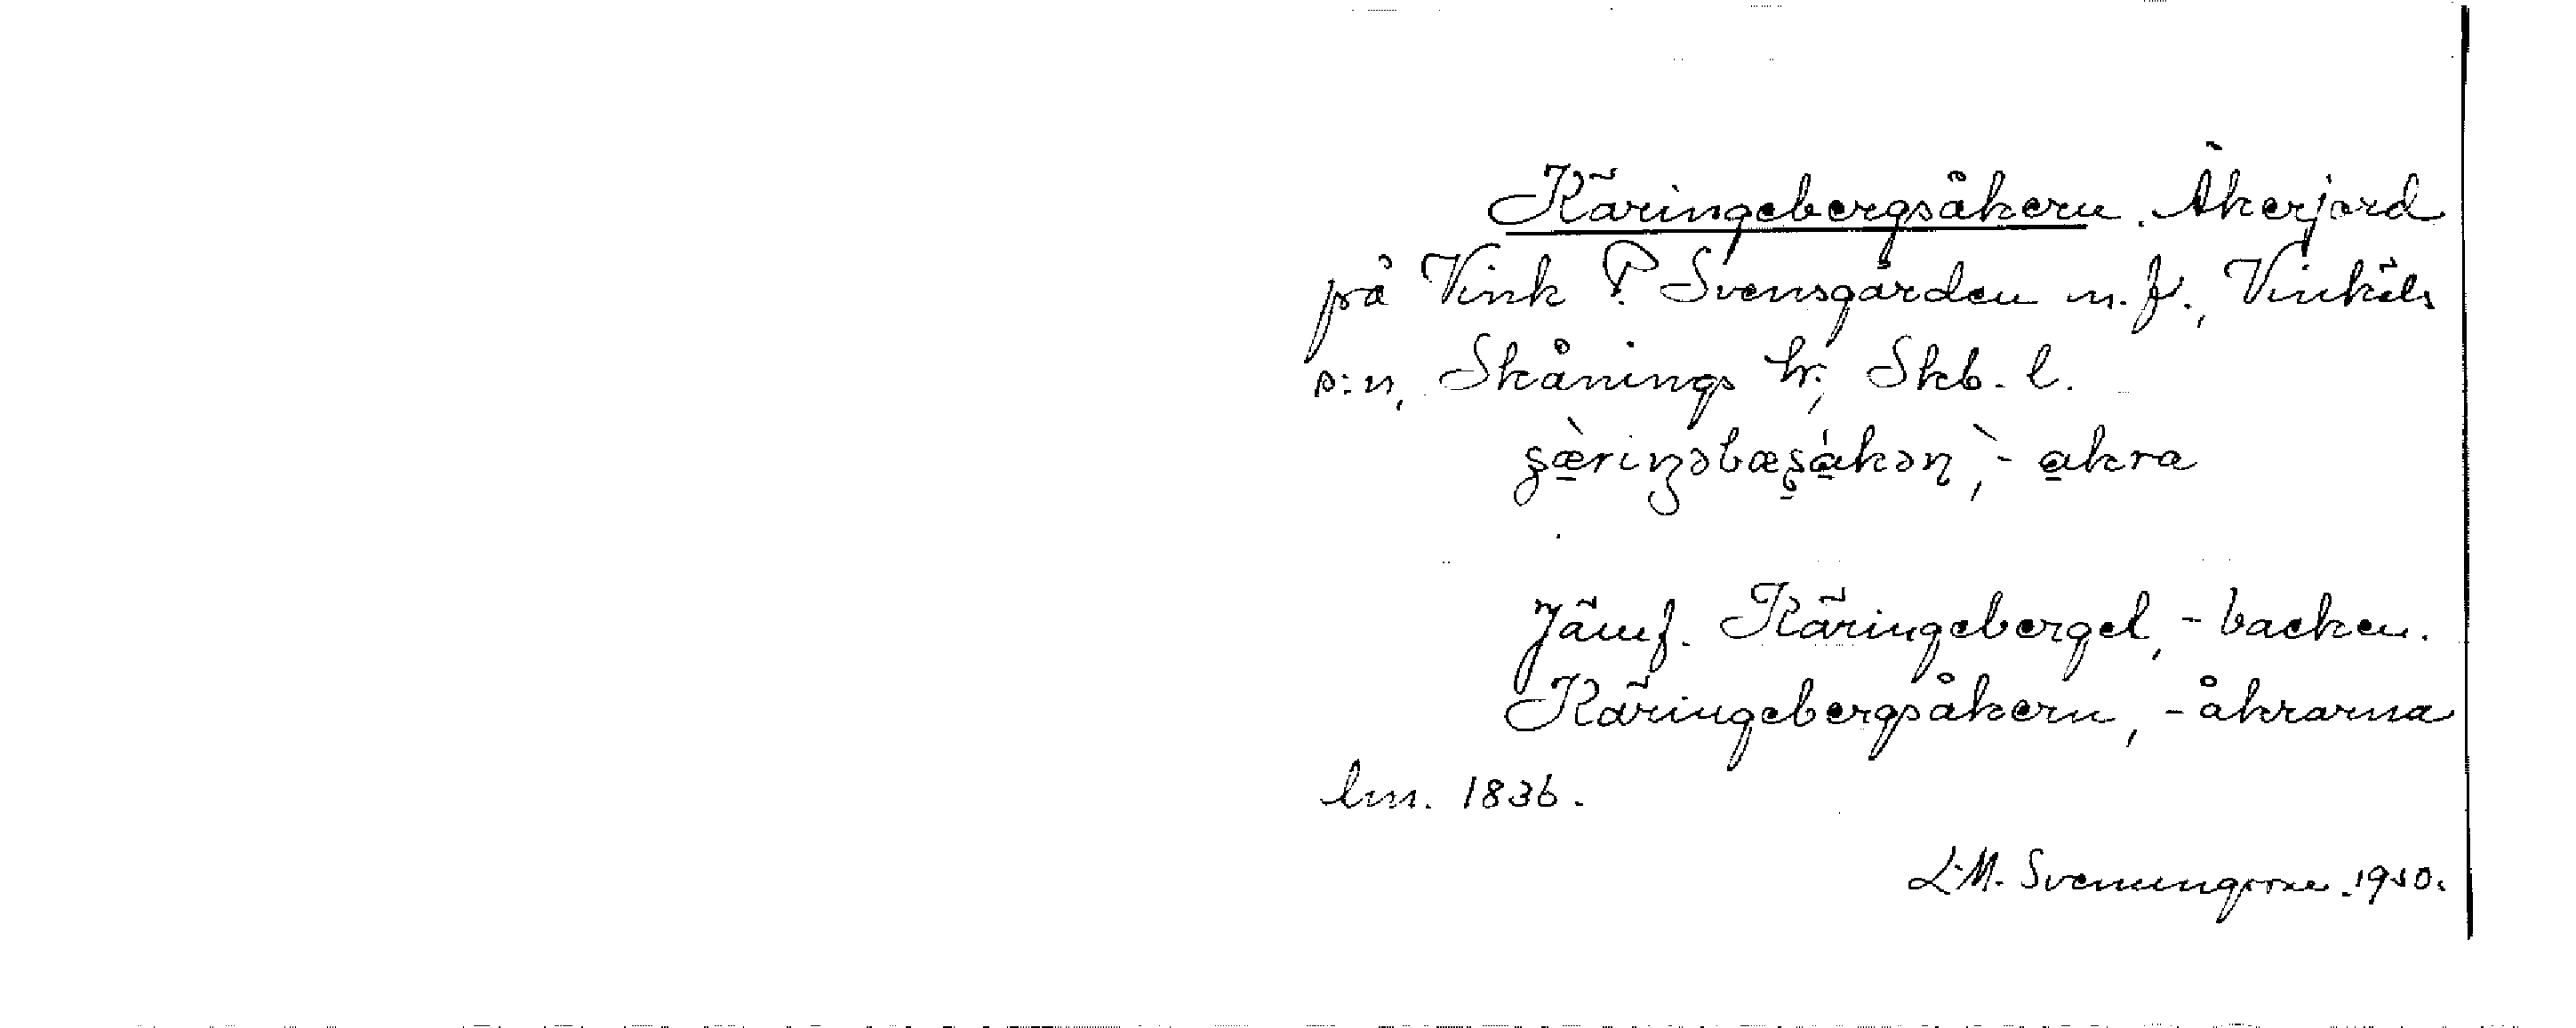 Käringebergsåkern. Åkerjord
på Vink P. Svensgården m.fl., Vinköls
s:n, Skånings hr, Skb. l.
-akra
Jämf. Käringeberget, -backen.
Käringebergsåkern, -åkrarna
lm. 1836.
L.M. Svenungsson. 1950.